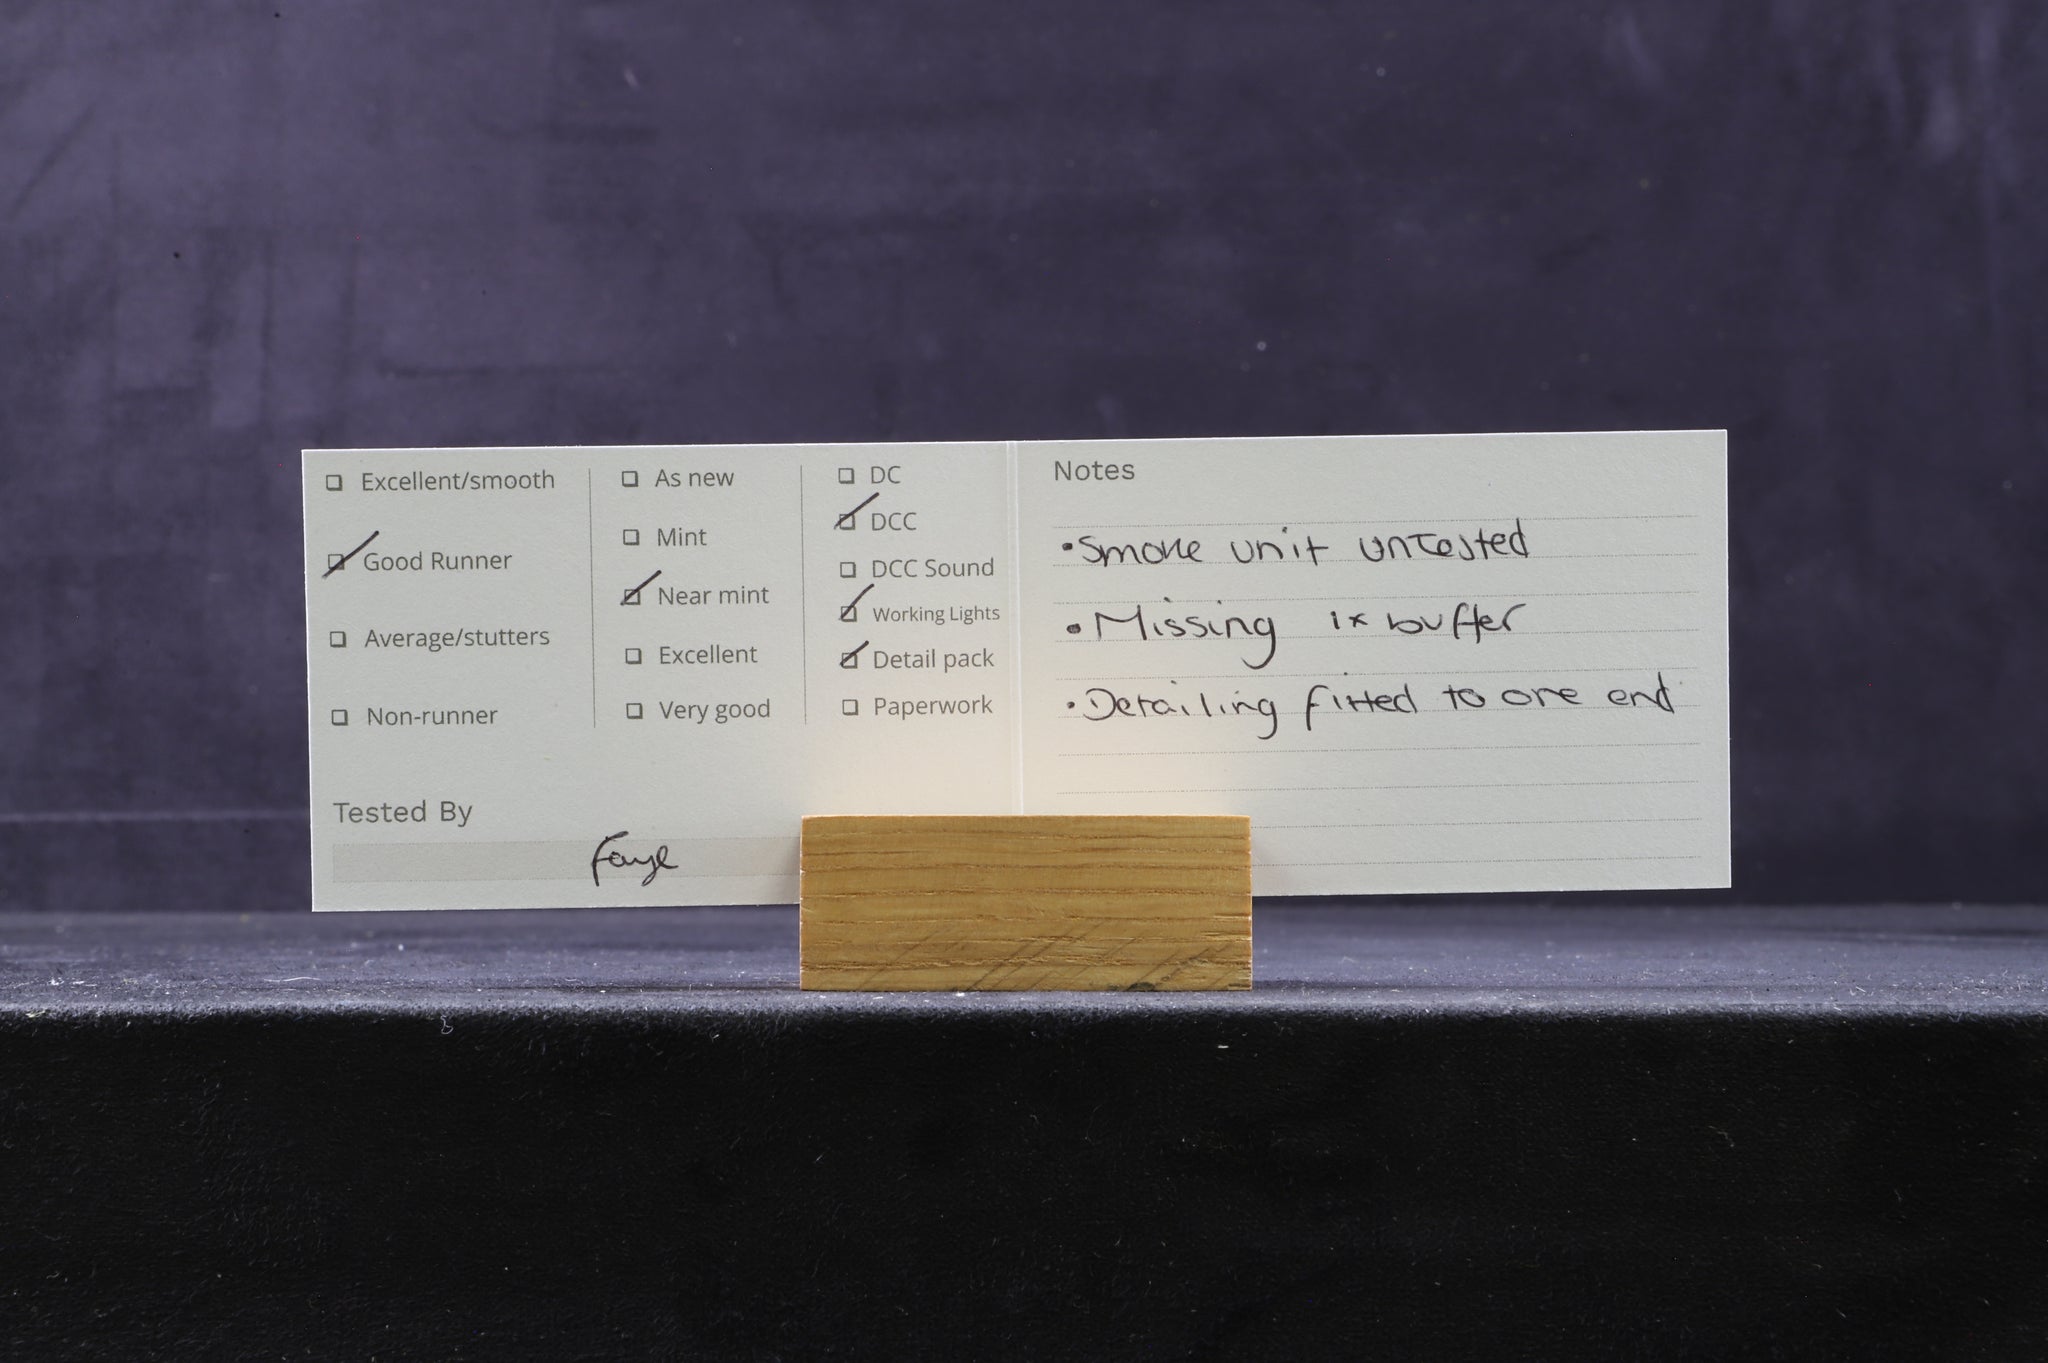 Excellent/smooth
Good Runner
Average/stutters
Non-runner
As new
Mint
Near mint
Excellent
Very good
DC
DCC
DCC Sound
Working Lights
Detail pack
Paperwork
Tested By
Faye
Notes
•Smoke unit untested
•Missing 1x buffer
•Detailing fitted to one end